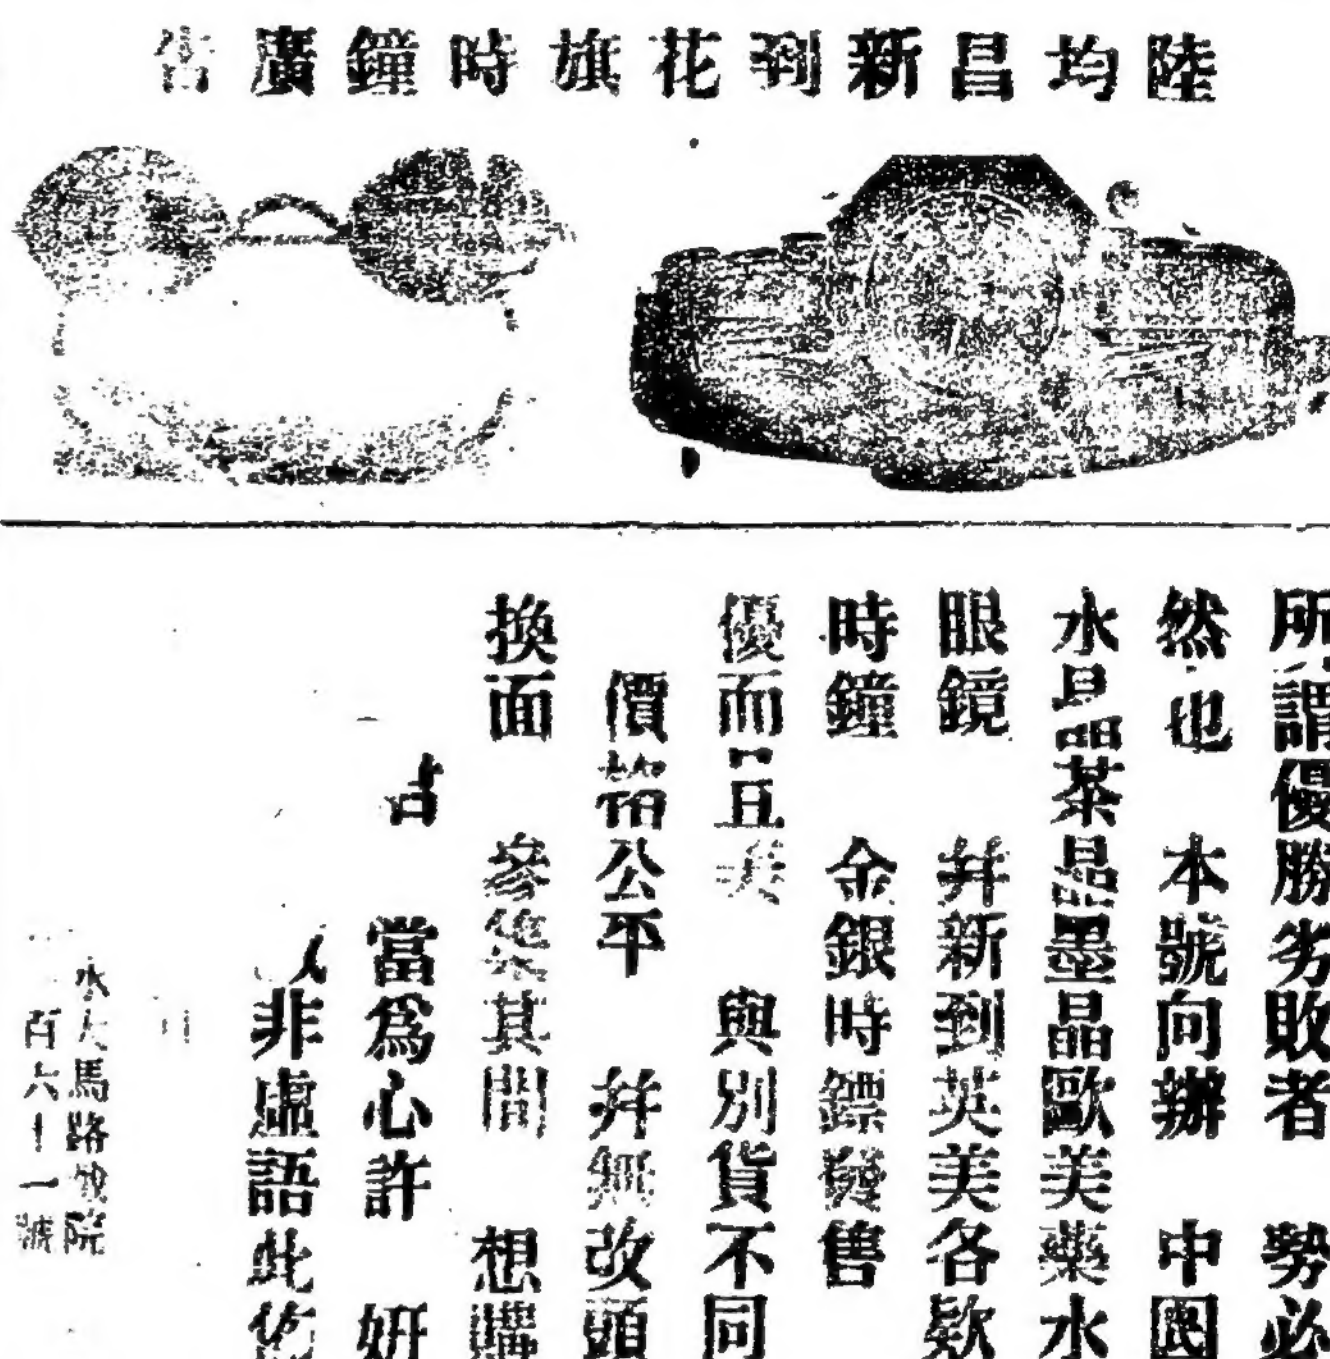 陸均昌新到花旗時鐘廣告
所謂優勝劣敗者 勢必
然也 本號向辦 中國
水晶茶晶墨晶歐美藥水
眼鏡 幷新到英美各欵
時鐘 金銀時鏢發售
優而且美 與別貨不同
價格公平 幷無改頭
換面 參差其間 想購
占 當爲心許 妍
非虛語此佈
水大馬路戲院
百六十一號